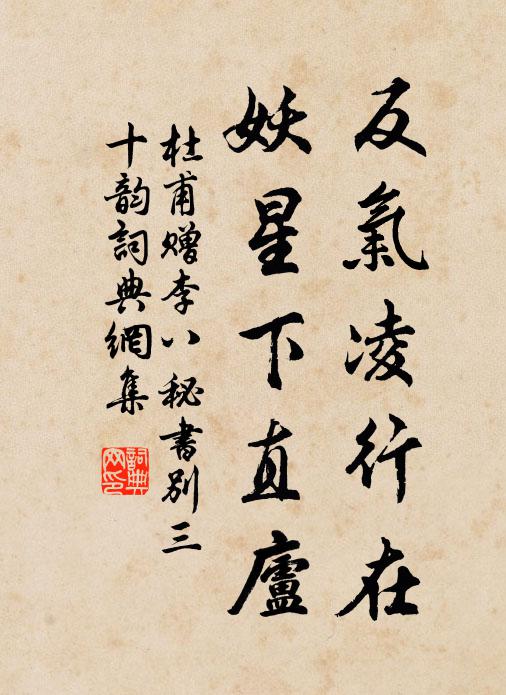 反氣凌行在
妖星下直廬
杜甫贈李八秘書別三
十韵詞典網集
詞典网印